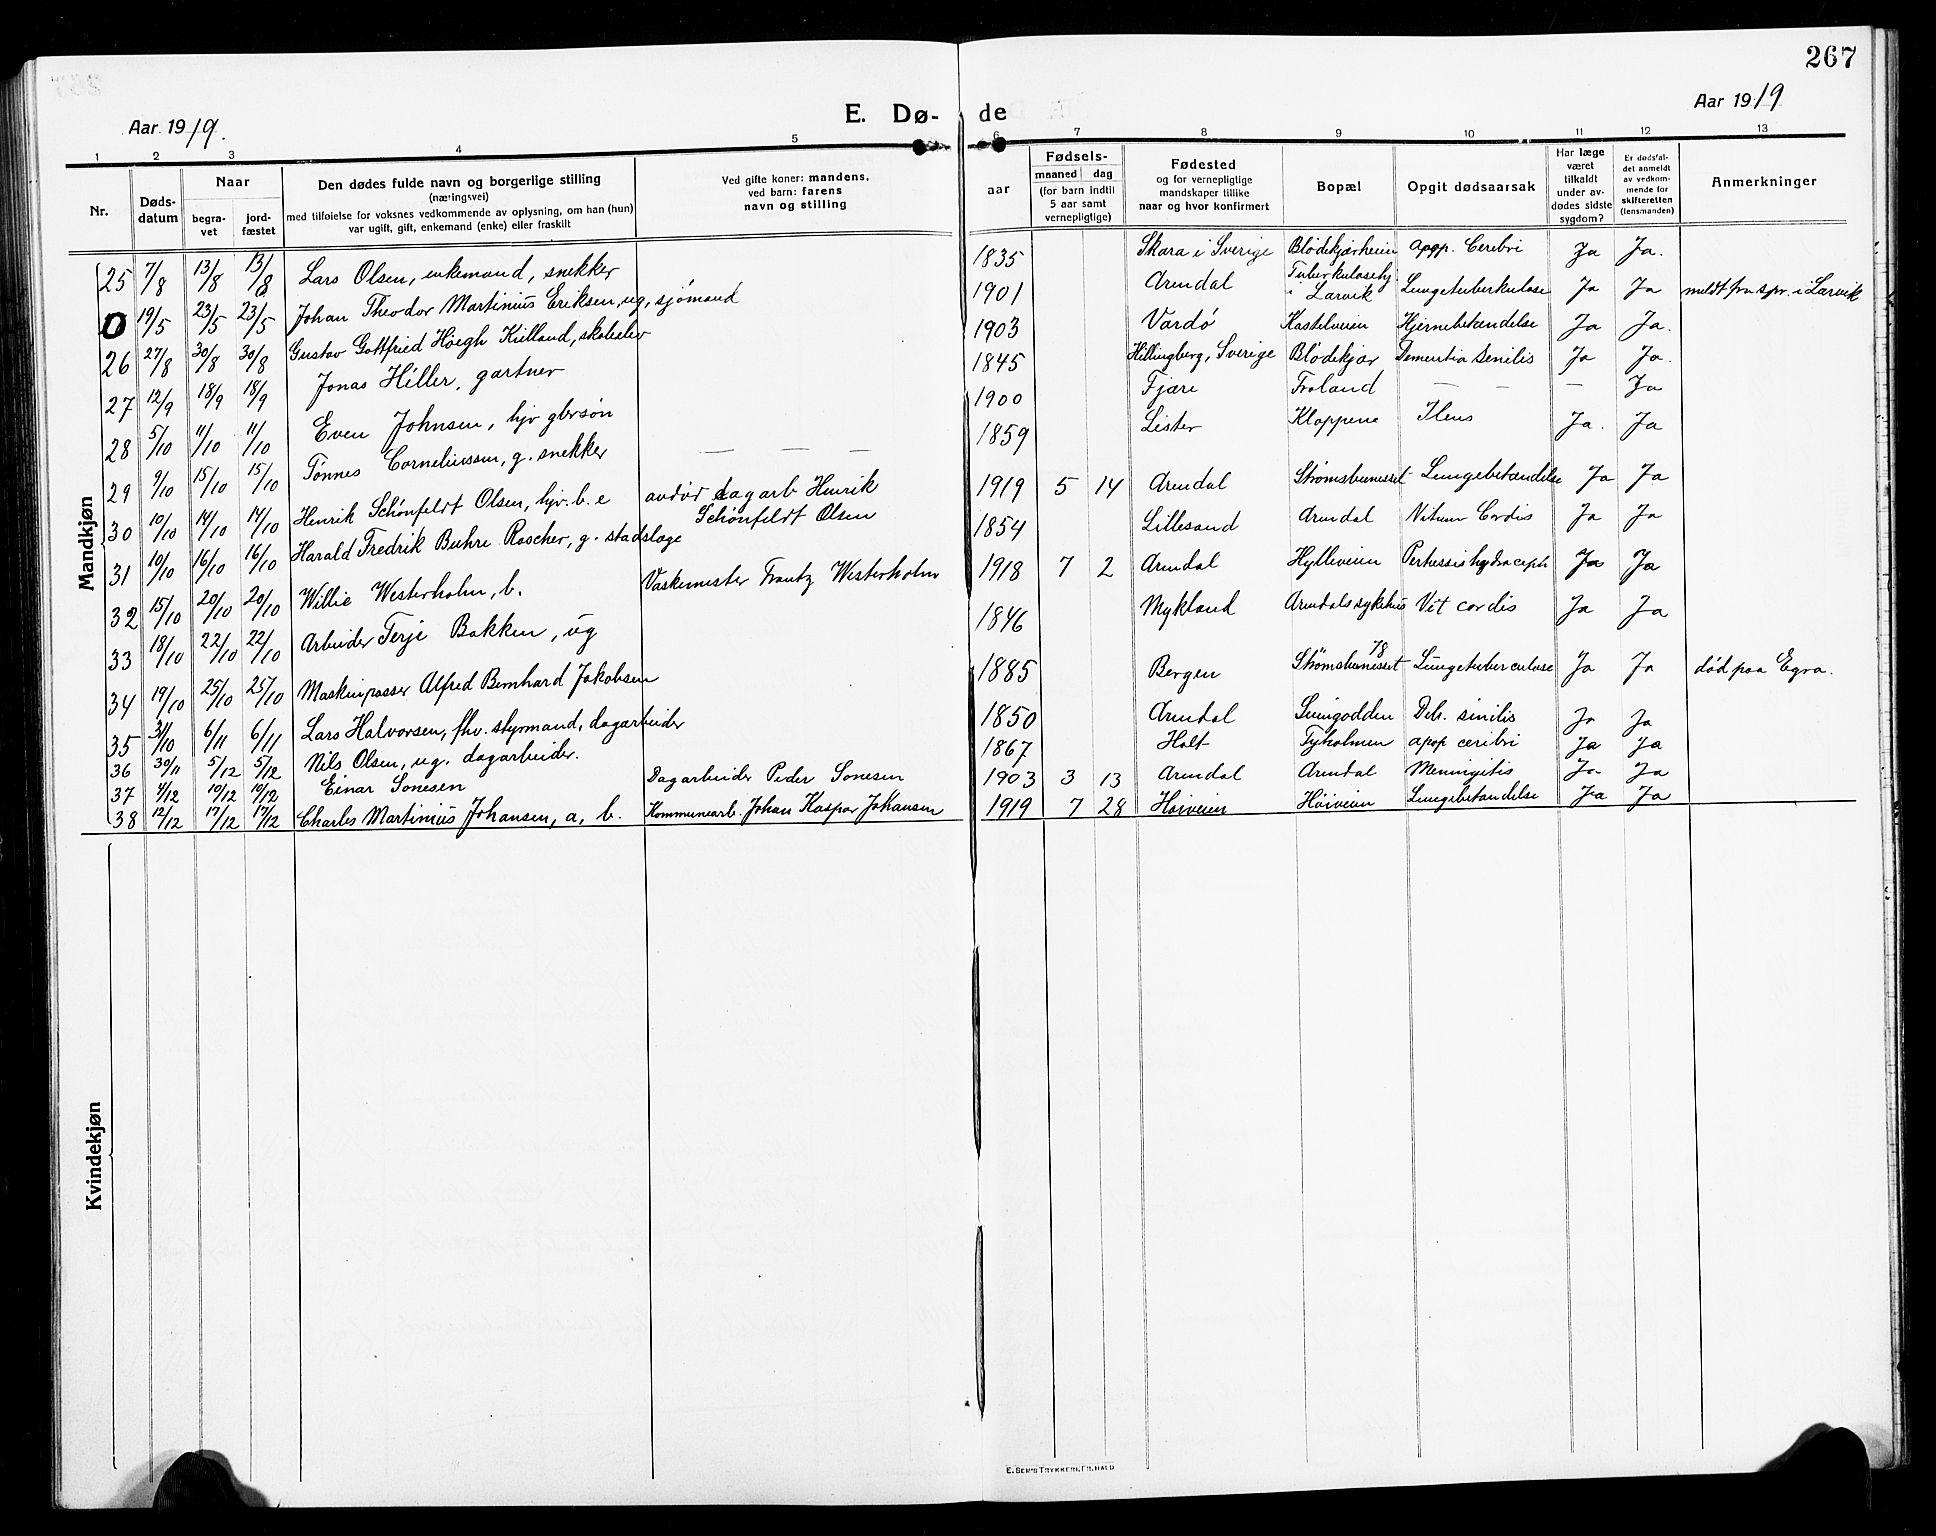 267
Aar 1919. E. Dø- de Aar 1919
1 2 3 4 5 6 7 8 9 10 11 12 13
Nr. Døds-datum Naar begra-vet jord-fæstet Den dødes fulde navn og borgerlige stilling (næringsvei) med tilføielse for voksnes vedkommende av oplysning, om han (hun) var ugift, gift, enkemand (enke) eller fraskilt Ved gifte koner: mandens, ved barn: farens navn og stilling aar Fødsels- maaned dag (for barn indtil 5 aar samt vernepligtige) Fødested og for vernepligtige mandskaper tillike naar og hvor konfirmert Bopæl Opgit dødsaarsak Har læge været tilkaldt under av-dødes sidste sygdom? Er dødsfal-det anmeldt av vedkom-mende for skifteretten (lensmanden) Anmerkninger
Mandkjøn
25 7/8 13/8 13/8 Lars Olsen, enkemand, snekker 1835 Skara i Sverige Blödekjærheien apop. Cerebri Ja Ja.
0 19/5 23/5 23/5 Johan Theodor Martinius Eriksen, ug, sjömand 1901 Arendal Tuberkulosehj i Larvik Lungetuberkulose Ja Ja meldt fra spr. i Larvik
26 27/8 30/8 30/8 Gustav Gottfried Höegh Kielland, skoleelev 1903 Vardö Kastelveien Hjernebetændelse Ja Ja.
27 12/9 18/9 18/9 Jonas Hiller, gartner 1845 Hillingberg, Sverige Blödekjær Dementia senilis Ja Ja.
28 5/10 11/10 11/10 Even Johnsen, hjv gbrsön 1900 Fjære Froland — — — Ja
29 9/10 15/10 15/10 Tönnes Corneliussen, g. snekker — — — 1859 Lister Kloppene Ileus Ja. Ja
30 10/10 14/10 14/10 Henrik Schönfeldt Olsen, hjv. b. e avdör dagarb Henrik Schönfeldt Olsen 1919 5 14 Arendal Strømsbuneset Lungebetændelse Ja Ja
31 10/10 16/10 16/10 Harald Fredrik Buhre Roscher, g. stadslæge 1854 Lillesand Arendal Vitium Cordis Ja Ja
32 15/10 20/10 20/10 Willie Westerholm, b. Vaskemester Frantz Westerholm 1918 7 2 Arendal Hylleveien Pertussis hydroceph Ja Ja
33 18/10 22/10 22/10 Arbeider Terje Bakken, ug 1846 Mykland Arendals sykehus Vit cordis Ja Ja
34 19/10 25/10 25/10 Maskinpasser Alfred Bernhard Jakobsen 1885 Bergen Strømsbuneset 78 Lungetuberculose Ja Ja død paa Egra.
35 31/10 6/11 6/11 Lars Halvorsen, fhv. styrmand, dagarbeider 1850 Arendal Deb. senilis Ja Ja
36 30/11 5/12 5/12 Nils Olsen, ug. dagarbeider. 1867 Holt Tyholmen apop ceribri Ja Ja
37 4/12 10/12 10/12 Einar Sonesen Dagarbeider Peder Sonesen 1903 3 13 Arendal Arendal Meningitis Ja Ja
38 12/12 17/12 17/12 Charles Martinius Johansen, a, b. Kommunearb. Johan Kaspar Johansen 1919 7 28 Höiveien Höiveien Lungebetændelse Ja Ja
Kvindekjøn
E. SEM'S TRYKKERI, FR.HALD